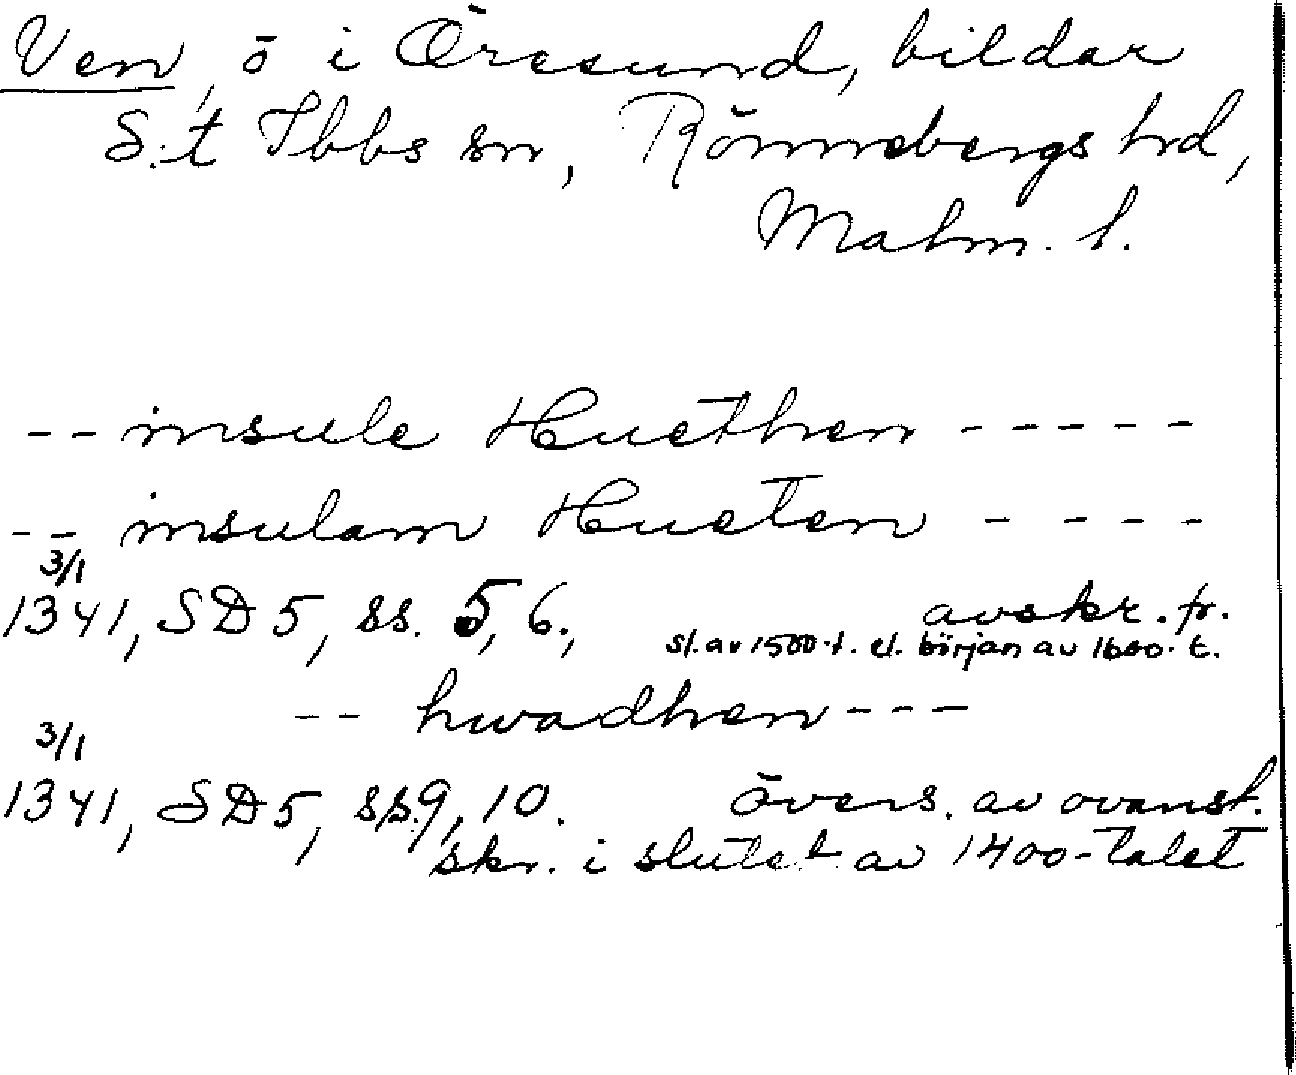 Ven, ö i Öresund, bildar
S:t Ibbs sn, Rönnebergs hd,
Malm. l.
-- insule Huethen -----
-- insulam Hueten ----
3/1
1341, SD 5, ss. 5, 6., avskr. fr.
sl. av 1500-t. el. början av 1600-t.
-- hwadhen ---
3/1
1341, SD 5, ss. 9, 10. övers. av ovanst.
skr. i slutet av 1400-talet